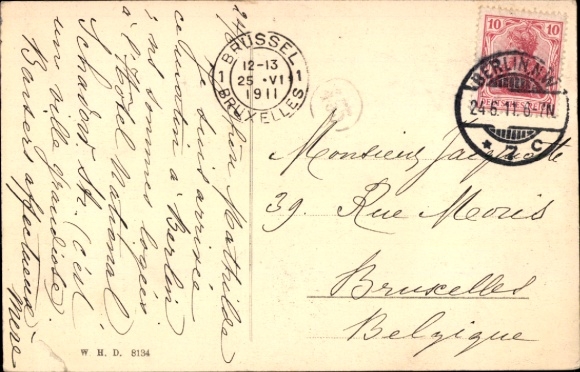 24/6 Mathilde
Je suis arrivée
ce matin à Berlin
ns sommes logés
à l'Hôtel National
Schadow Str. (c'est
un ville grandiose
Baisers affectueux
Mère
BRÜSSEL
1 1
12-13
25 VI
1911
BRUXELLES
10 10
BERLIN N.W.
24.6.11. 6-7N.
* 7 c
Monsieur
39. Rue Moris
Bruxelles
Belgique
W. H. D. 8134